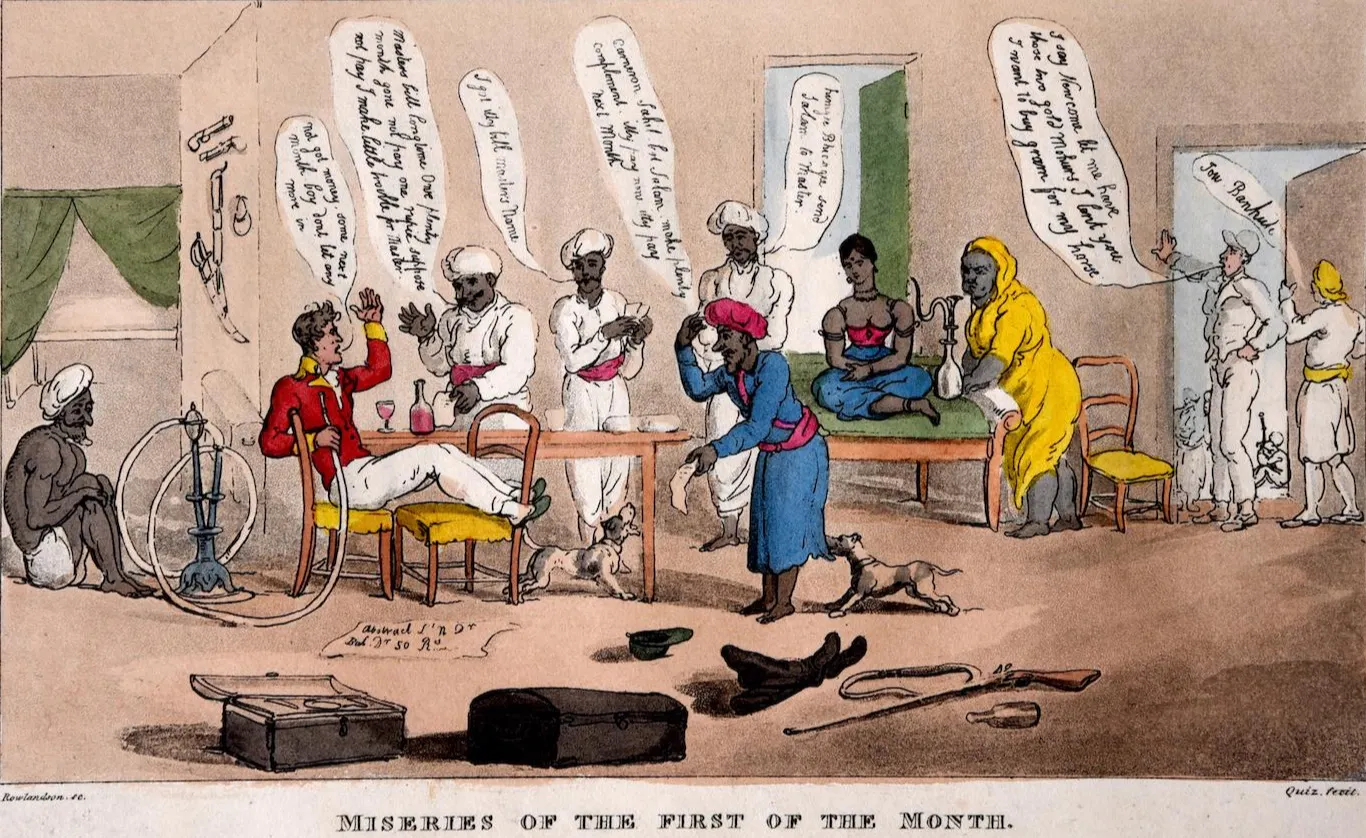 not got money some next
month boy dont let any
more in
Masters bill longtime Due plenty
month gone not pay one rupee suppose
not pay I make little trouble for Master.
I got My bill masters Name
Cameron Sahib bot Salam make plenty
complement. My pay now My pay
next Month
Bhicajee send
Salam to Master.
I say Newcome let me have
those two gold Mohurs I lent you
I want to buy gram for my horse
Jow
Abstract Dr
Bal. Dr 50 Rs
Rowlandson. sc.
Quiz. fecit.
MISERIES OF THE FIRST OF THE MONTH.